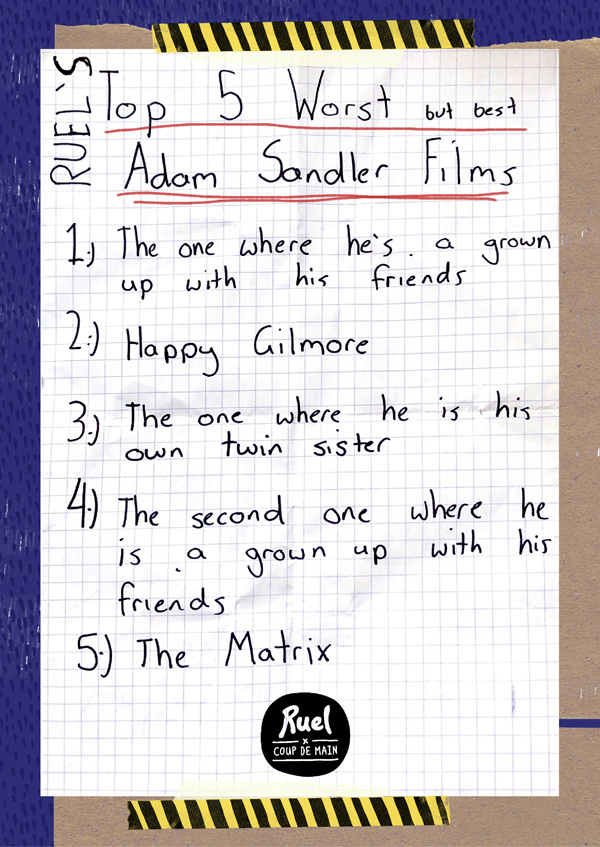 RUEL'S
Top 5 Worst but best
Adam Sandler Films
1.) The one where he's a grown
up with his friends
2.) Happy Gilmore
3.) The one where he is his
own twin sister
4.) The second one where he
is a grown up with his
friends
5.) The Matrix
Ruel
x
COUP DE MAIN